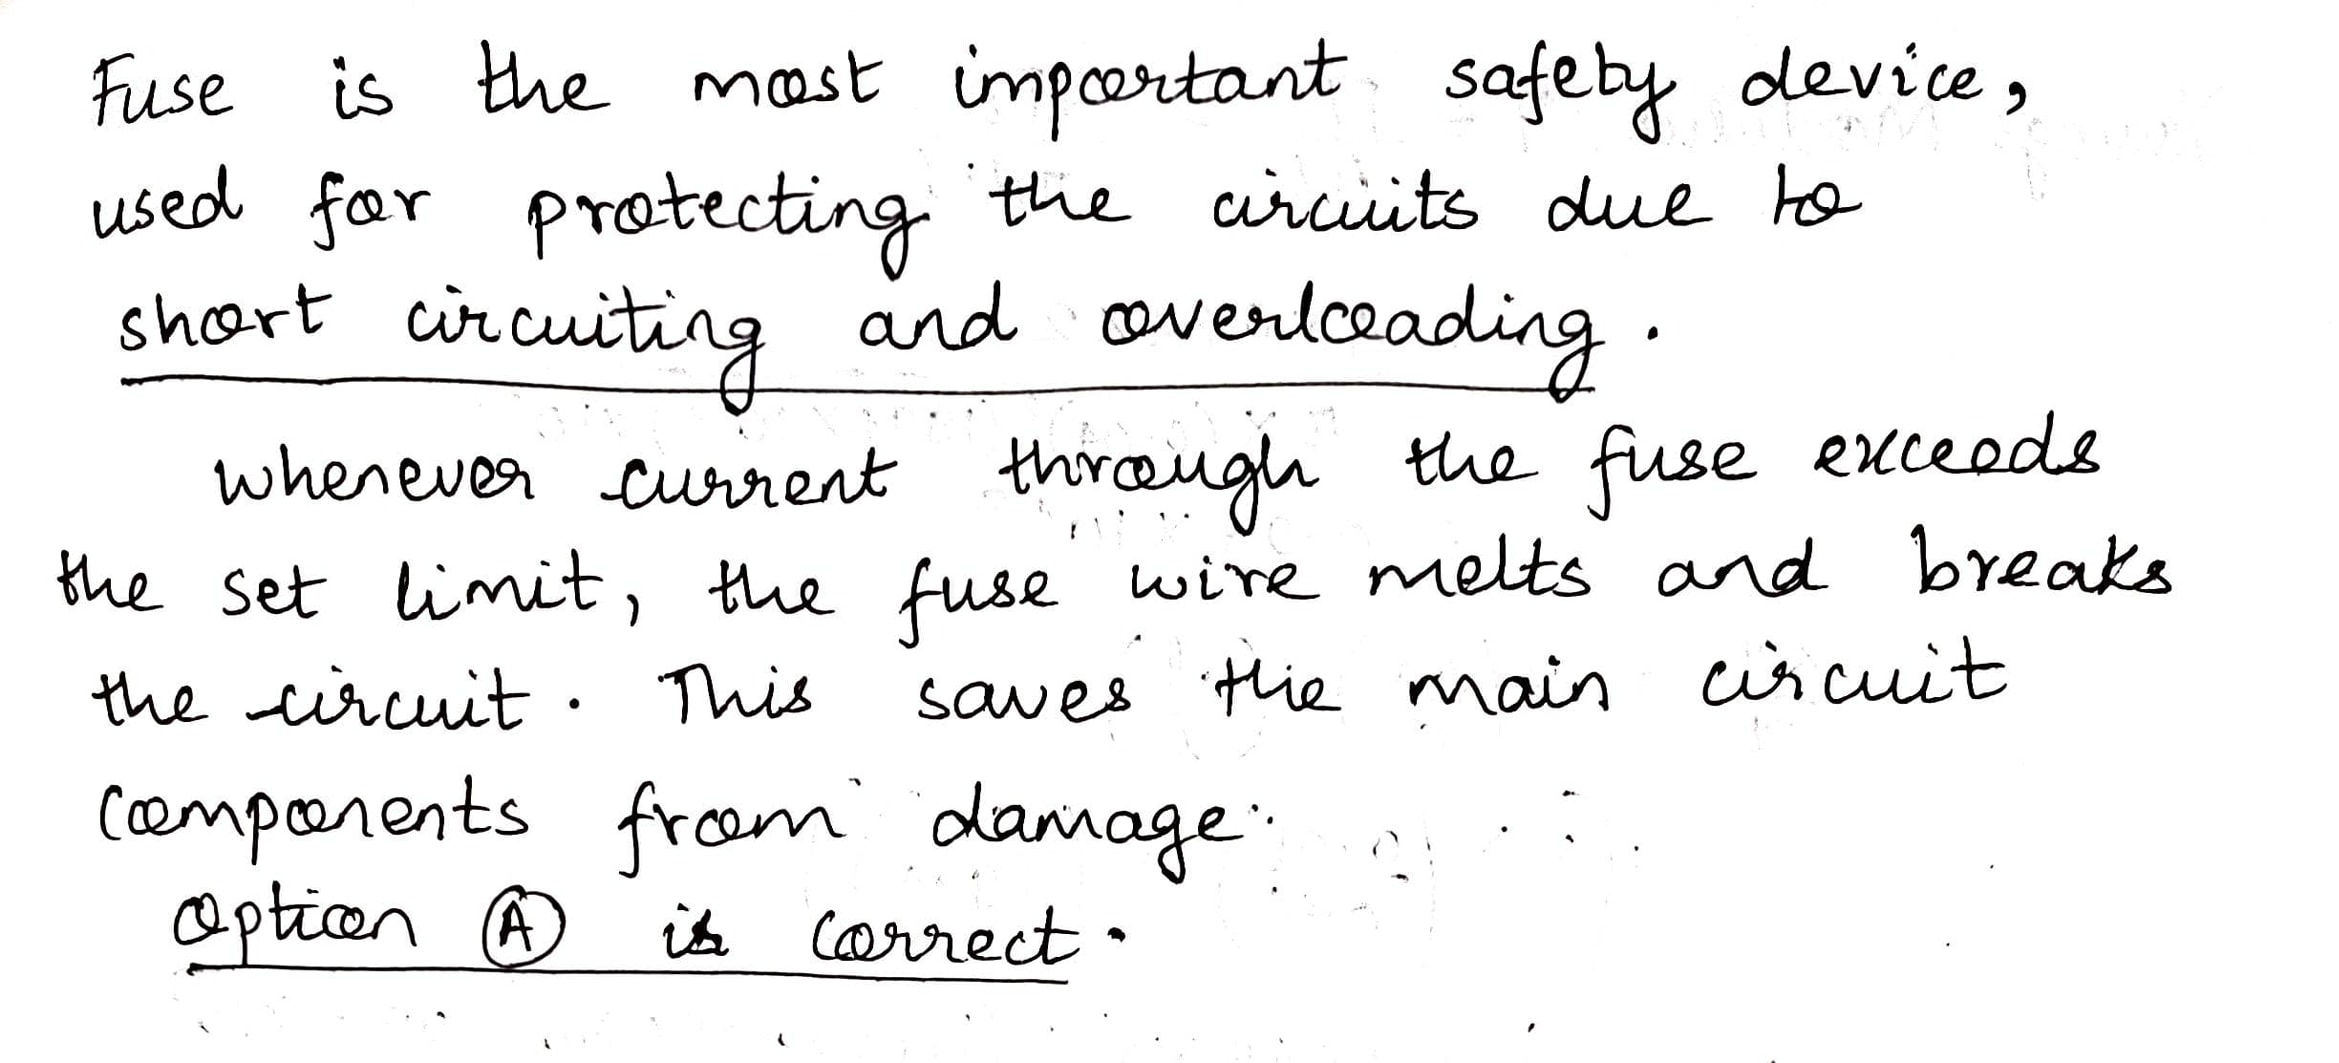 Fuse is the most important safety device,
used for protecting the circuits due to
short circuiting and overloading.
Whenever current through the fuse exceeds
the set limit, the fuse wire melts and breaks
the circuit. This saves the main circuit
components from damage.
Option A is correct.